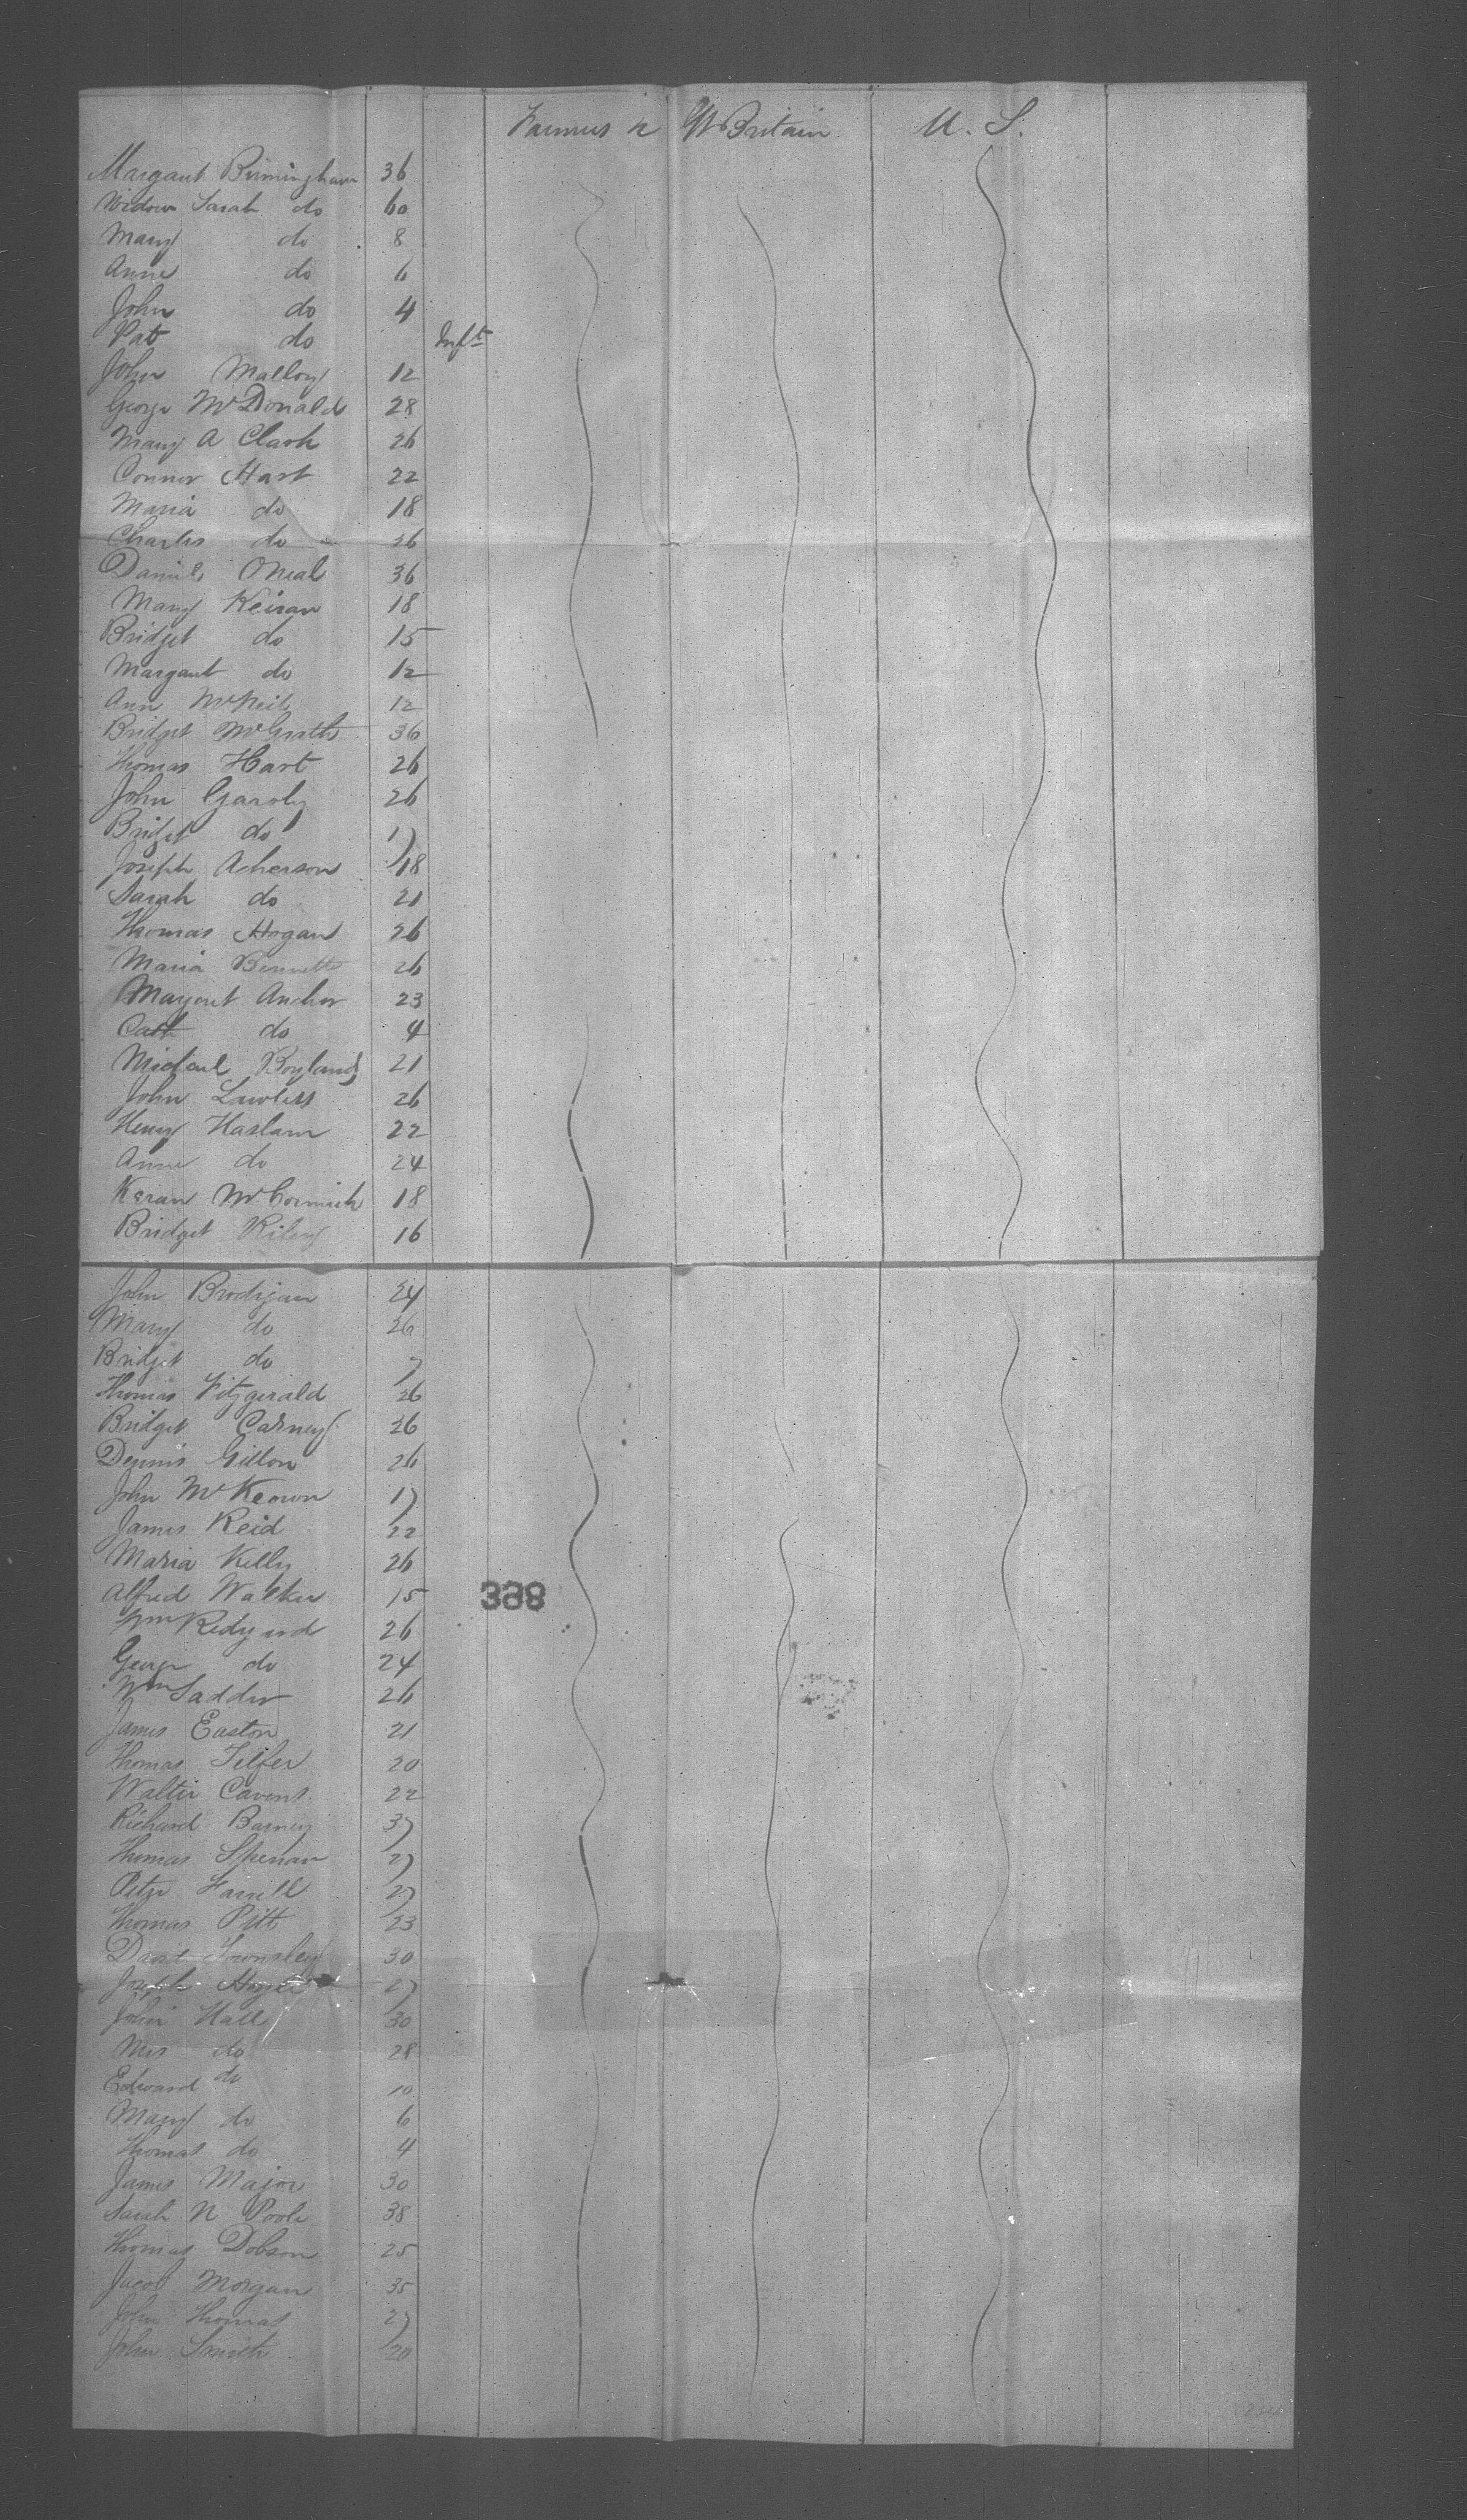 Farmers &c Gt Britain U. S.
Margaret Birmingham 36
Widow Sarah do 60
Mary do 8
Anne do 6
John do 4
Pat do Inft
John Malloy 12
George McDonald 28
Mary A Clark 26
Connor Hart 22
Maria do 18
Charles do 26
Daniel ONeal 36
Mary Keiran 18
Bridget do 15
Margaret do 12
Ann McNeil 12
Bridget McGrath 36
Thomas Hart 26
John Garoly 26
Bridget do 17
Joseph Acherson 18
Sarah do 21
Thomas Hogan 26
Maria Bennett 26
Margaret Anchor 23
Cath do 4
Michael Boyland 21
John Lawless 26
Henry Haslam 22
Anne do 24
Keran McCormick 18
Bridget Riley 16
John Brodigan 24
Mary do 26
Bridget do 7
Thomas Fitzgerald 26
Bridget Carney 26
Dennis Gillon 26
John McKeown 17
James Reid 22
Maria Kelly 26
Alfred Walker 15
388
Wm Redyard 26
George do 24
Wm Sadder 26
James Easton 21
Thomas Telfer 20
Walter Cavens 22
Richard Barney 37
Thomas Skenan 27
Peter Farrell 27
Thomas Pitt 23
David Townsley 30
Joseph 27
John Hall 30
Mrs do 28
Edward do 10
Mary do 6
Thomas do 4
James Major 30
Sarah N Poole 38
Thomas Dobson 25
Jacob Morgan 35
John Thomas 27
John Smith 20